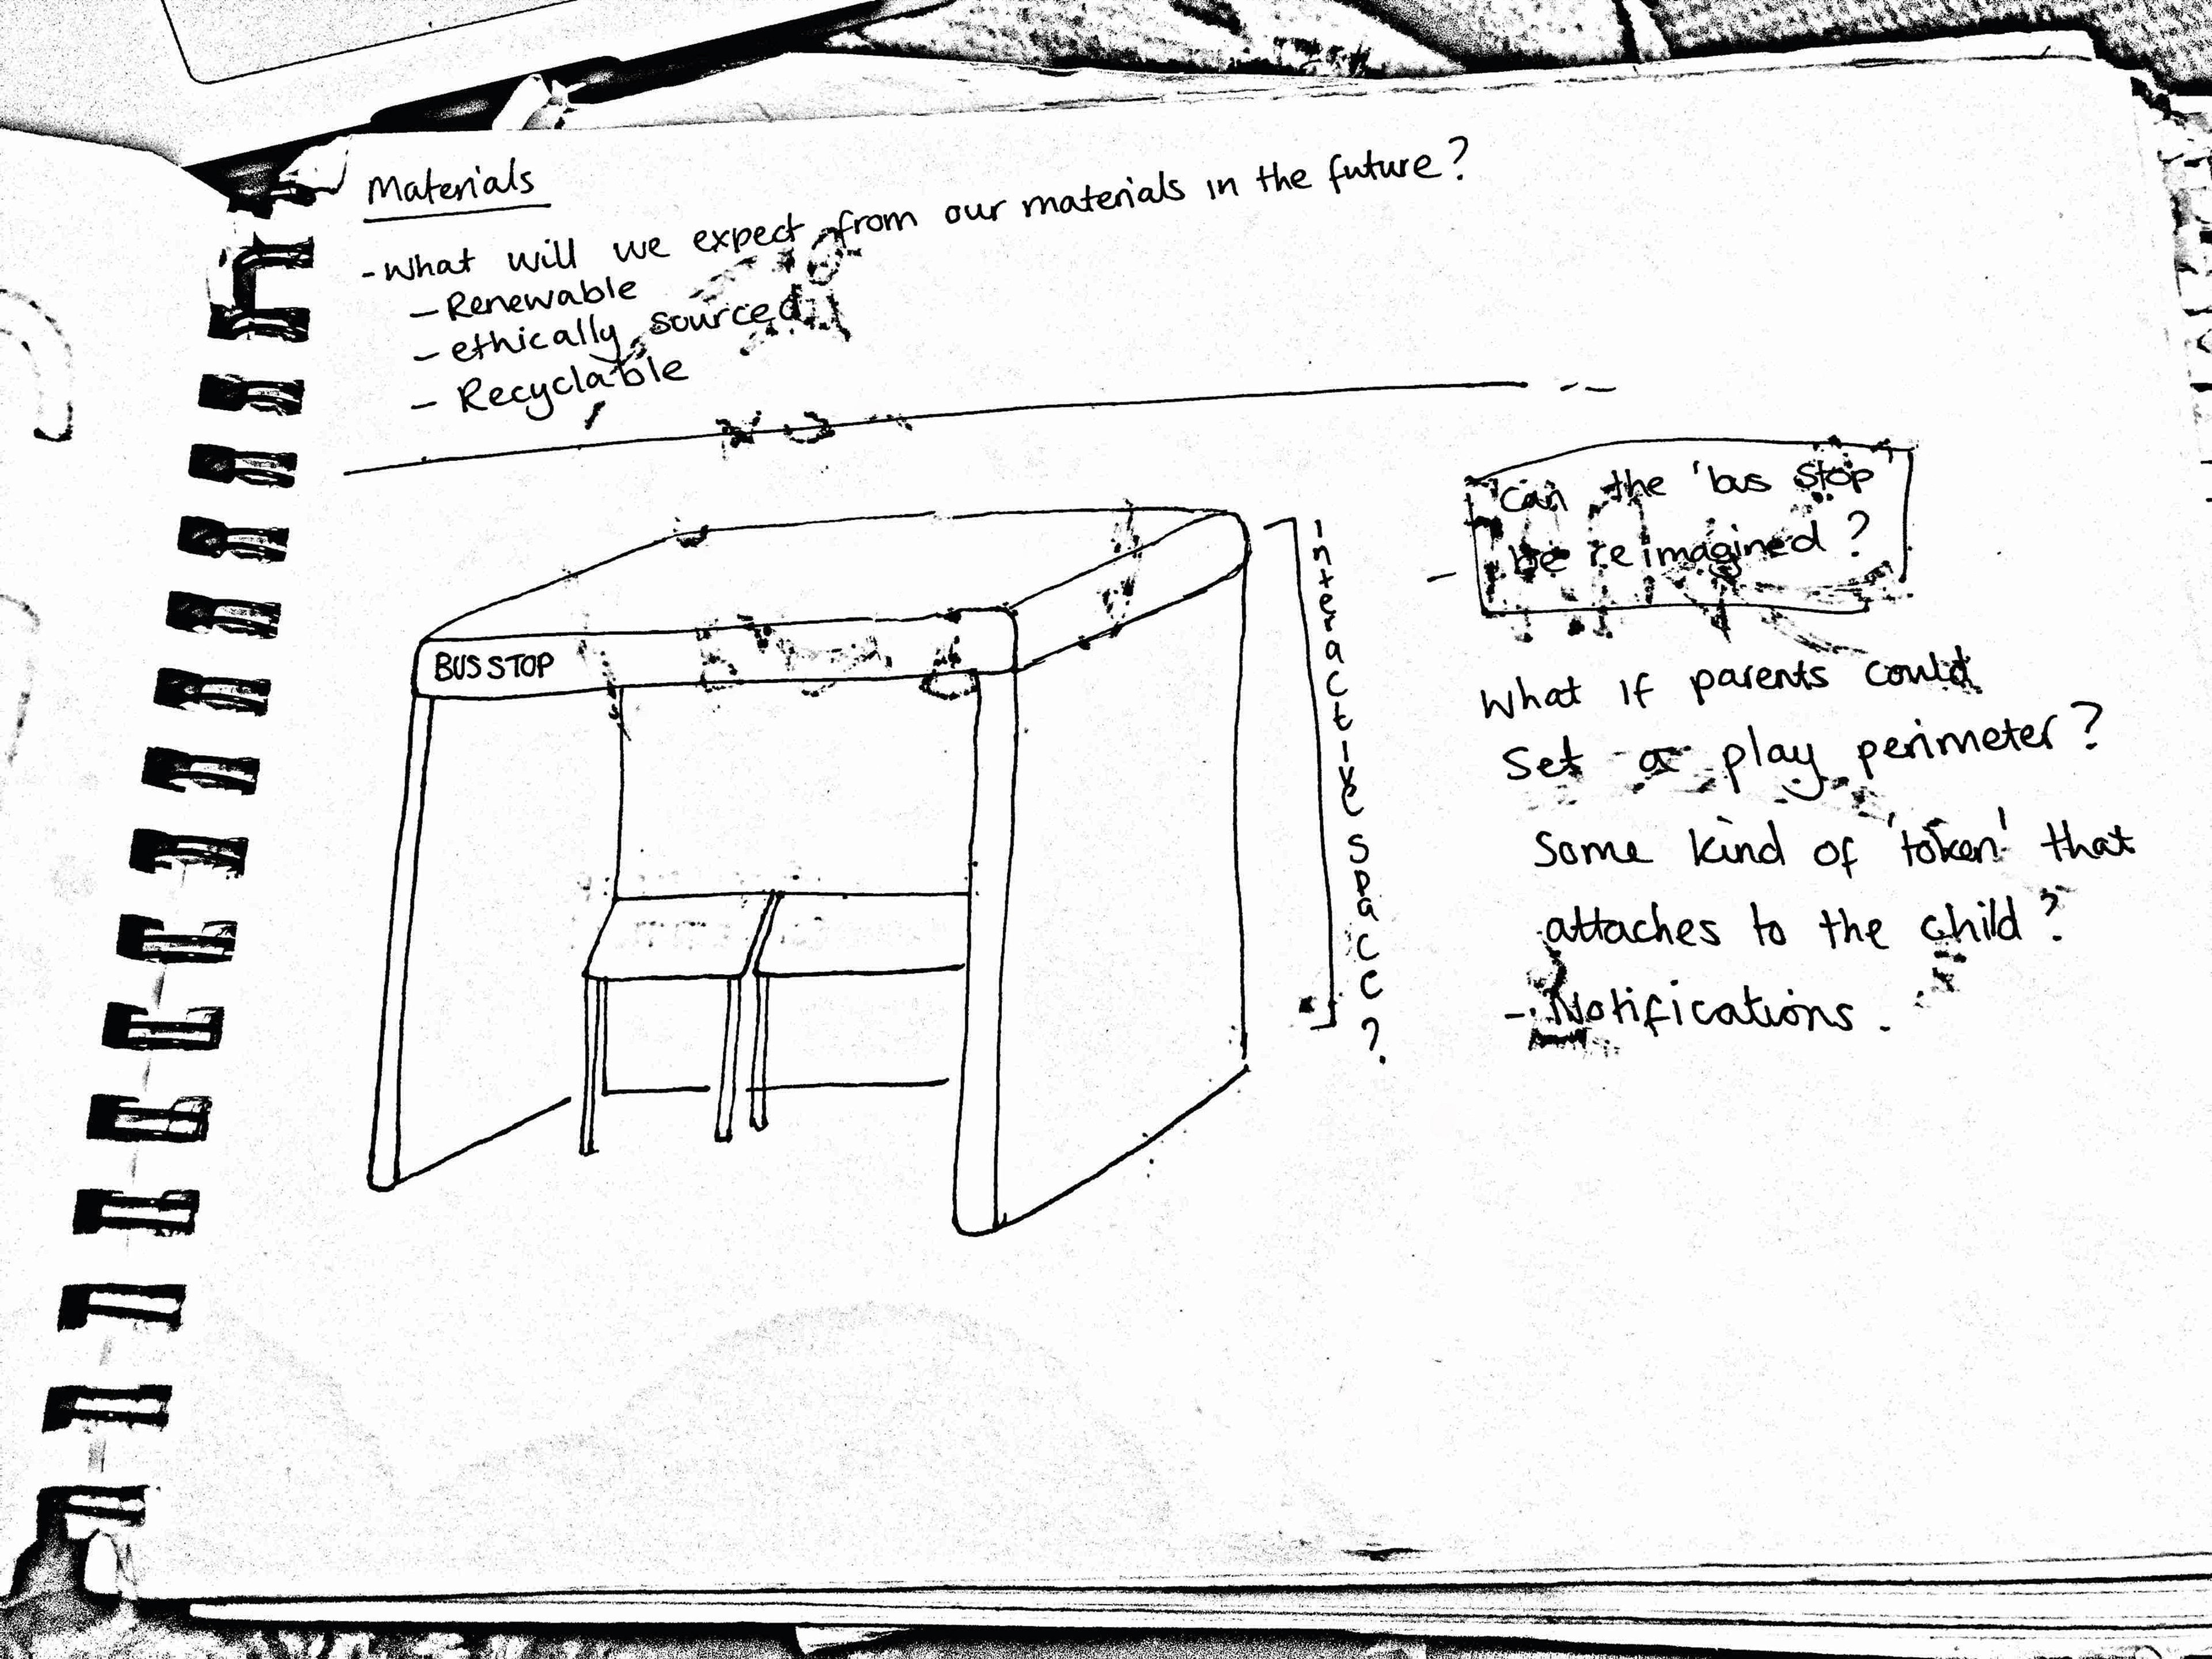 Materials
-What will we expect from our materials in the future?
- Renewable
- ethically sourced
- Recyclable
BUS STOP
Interactive space?
Can the 'bus stop'
be reimagined?
What if parents could
set a play perimeter?
Some kind of 'token' that
attaches to the child?
- Notifications.